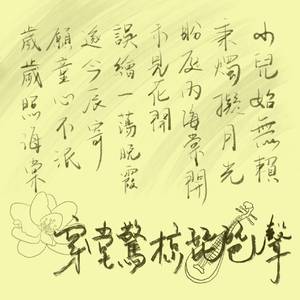 小兒始無賴
秉燭擬月光
盼庭內海棠開
未見花開
誤繪一蕩晚霞
遂今辰寄
願童心不泯
歲歲照海棠
穿堂驚掠琵琶聲